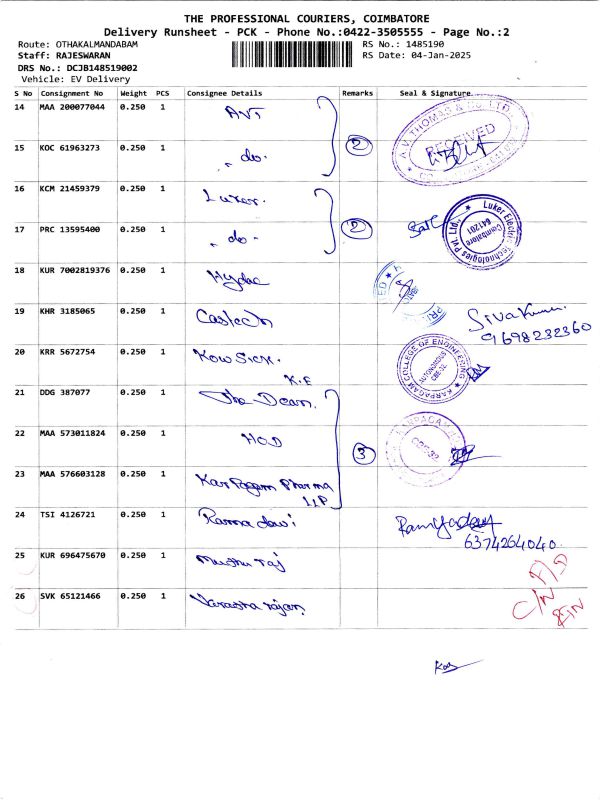 THE PROFESSIONAL COURIERS, COIMBATORE
Delivery Runsheet - PCK - Phone No.:0422-3505555 - Page No.:2
Route: OTHAKALMANDABAM RS No.: 1485190
Staff: RAJESWARAN RS Date: 04-Jan-2025
DRS No.: DCJB148519002
Vehicle: EV Delivery
S No Consignment No Weight PCS Consignee Details Remarks Seal & Signature
14 MAA 200077044 0.250 1 AVT
RECEIVED
15 KOC 61963273 0.250 1 - do - 2
16 KCM 21459379 0.250 1 Luker.
Luker Electric Technologies Pvt. Ltd.,
Coimbatore
641201
17 PRC 13595400 0.250 1 - do - 2
18 KUR 7002819376 0.250 1 Hydac
19 KHR 3185065 0.250 1 Castech Sivakumar
9698232360
20 KRR 5672754 0.250 1 Kowsick. K.E
KARPAGAM COLLEGE OF ENGINEERING
AUTONOMOUS
CBE-32
21 DDG 387077 0.250 1 The Dean.
22 MAA 573011824 0.250 1 HOD 3
KARPAGAM
CBE-32
23 MAA 576603128 0.250 1 Karpagam Pharma
LLP
24 TSI 4126721 0.250 1 Rama devi Ramya
6374264040
25 KUR 696475670 0.250 1 Muthu raj
26 SVK 65121466 0.250 1 Varatha rajan
C/N